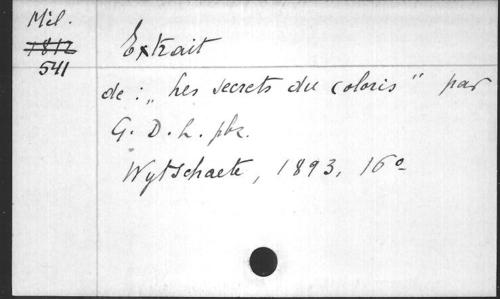 Mil.
1812
541
Extrait
de : „ Les secrets du coloris " par
G. D. L. pbr.
Wytschaete, 1893. 16°